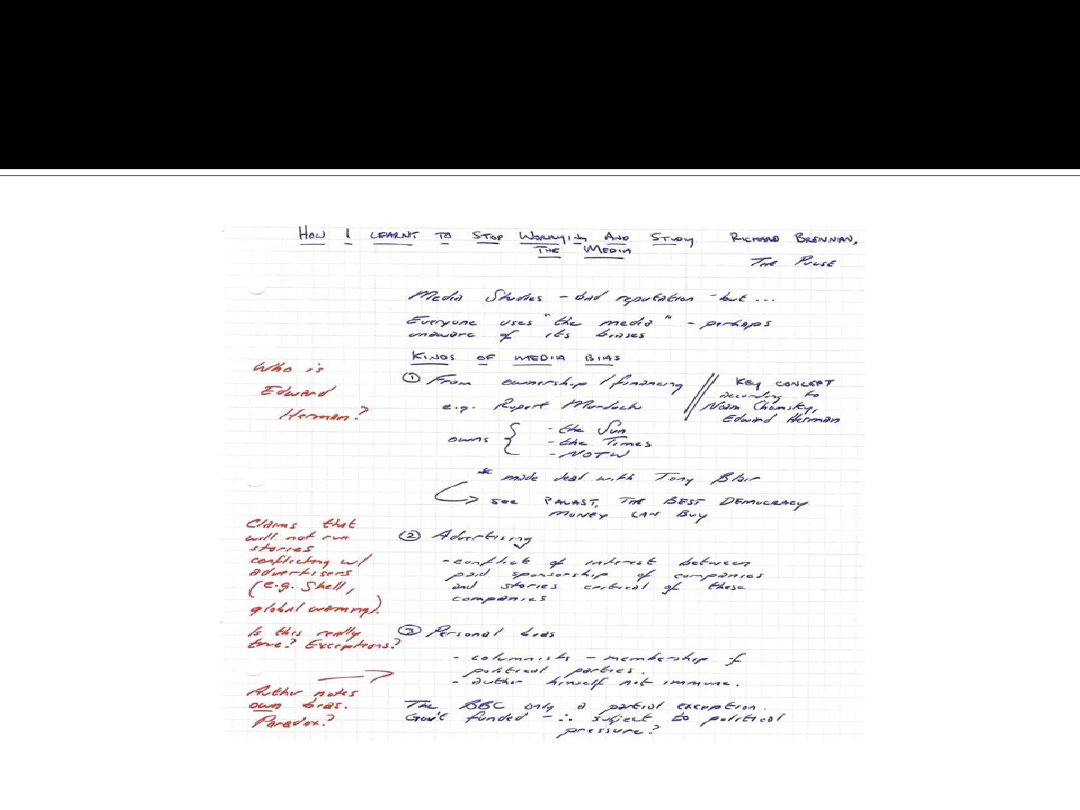 HOW I LEARNT TO STOP WORRYING AND STUDY
THE MEDIA
RICHARD BRENNAN,
THE PULSE
Media Studies - bad reputation - but ...
Everyone uses "the media" - perhaps
unaware of its biases
KINDS OF MEDIA BIAS
① From ownership / financing
e.g. Rupert Murdoch
owns { - the Sun
- the Times
- NOTW
// KEY CONCEPT
according to
Noam Chomsky,
Edward Herman
* made deal with Tony Blair
↪ see PALAST, THE BEST DEMOCRACY
MONEY CAN BUY
② Advertising
- conflict of interest between
paid sponsorship of companies
and stories critical of these
companies
③ Personal bias
- columnists - membership of
political parties.
- author himself not immune.
The BBC only a partial exception.
Gov't funded - ∴ subject to political
pressure?
Who is
Edward
Herman?
Claims that
will not run
stories
conflicting w/
advertisers
(e.g. Shell,
global warming).
Is this really
true? Exceptions?
Author notes
own bias.
Paradox?